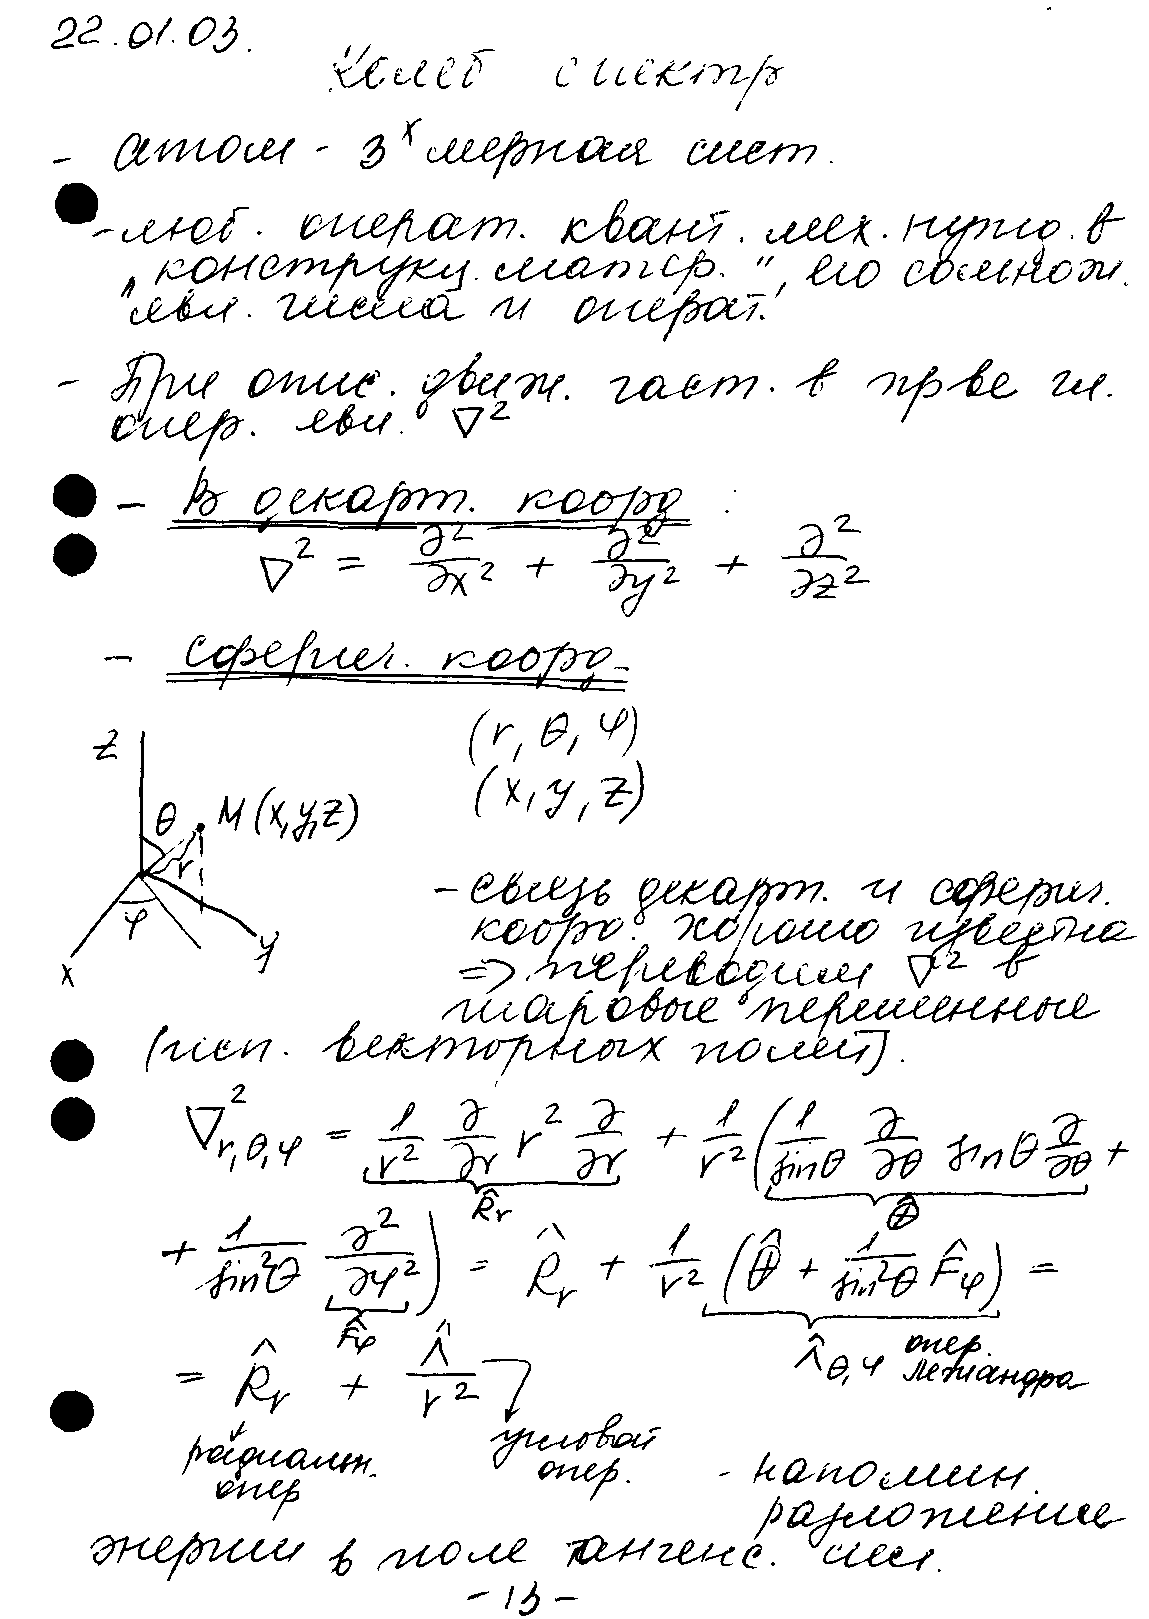 22.01.03.
Колеб спектр
- атом - 3х мерная сист.
- люб. операт. квант. мех. нужно в
"конструкц. матер.", его сомнож.
явл. числа и операт.
- При опис. движ. част. в пр-ве гл.
опер. явл. ∇²
- В декарт. коорд :
∇² = ∂²/∂x² + ∂²/∂y² + ∂²/∂z²
- сферич. коорд.
(r, θ, φ)
(x, y, z)
z
θ
M(x,y,z)
r
φ
x
y
- связь декарт. и сферич.
коорд. хорошо известна
=> переводим ∇² в
шаровые переменные
(исп. векторных полей).
∇²r,θ,φ = 1/r² ∂/∂r r² ∂/∂r + 1/r² (1/sinθ ∂/∂θ sinθ ∂/∂θ +
R̂r
Θ̂
+ 1/sin²θ ∂²/∂φ²) = R̂r + 1/r² (Θ̂ + 1/sin²θ F̂φ) =
F̂φ
Λ̂θ,φ опер.
Лежандра
= R̂r + Λ̂/r²
радиальн.
опер
угловой
опер.
- напомин.
разложение
энергии в поле тангенс. сил.
- 13 -